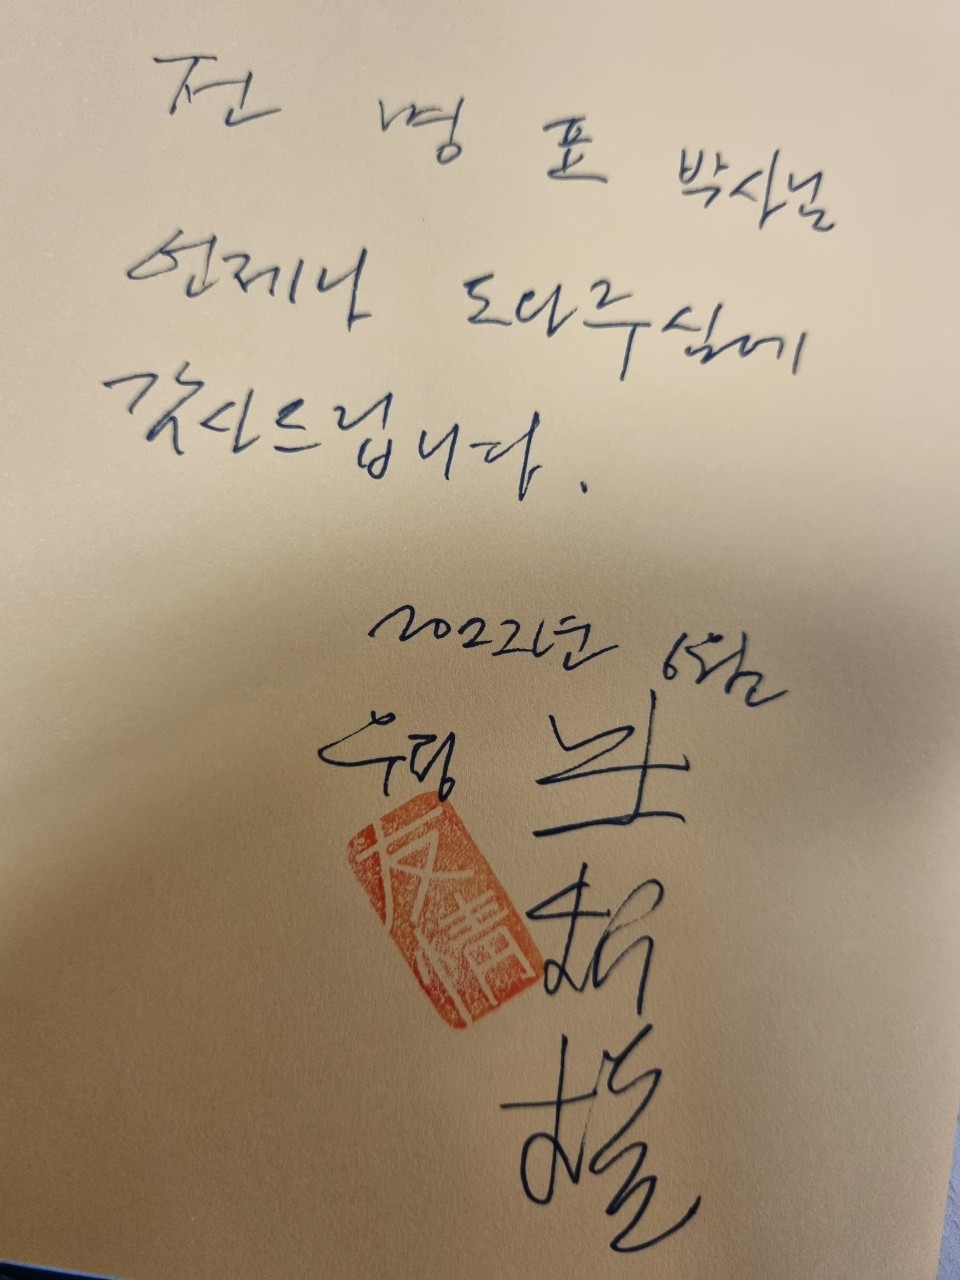 전 명 표 박사님
언제나 도와주심에
감사드립니다.
2022년 6월
우정
友情